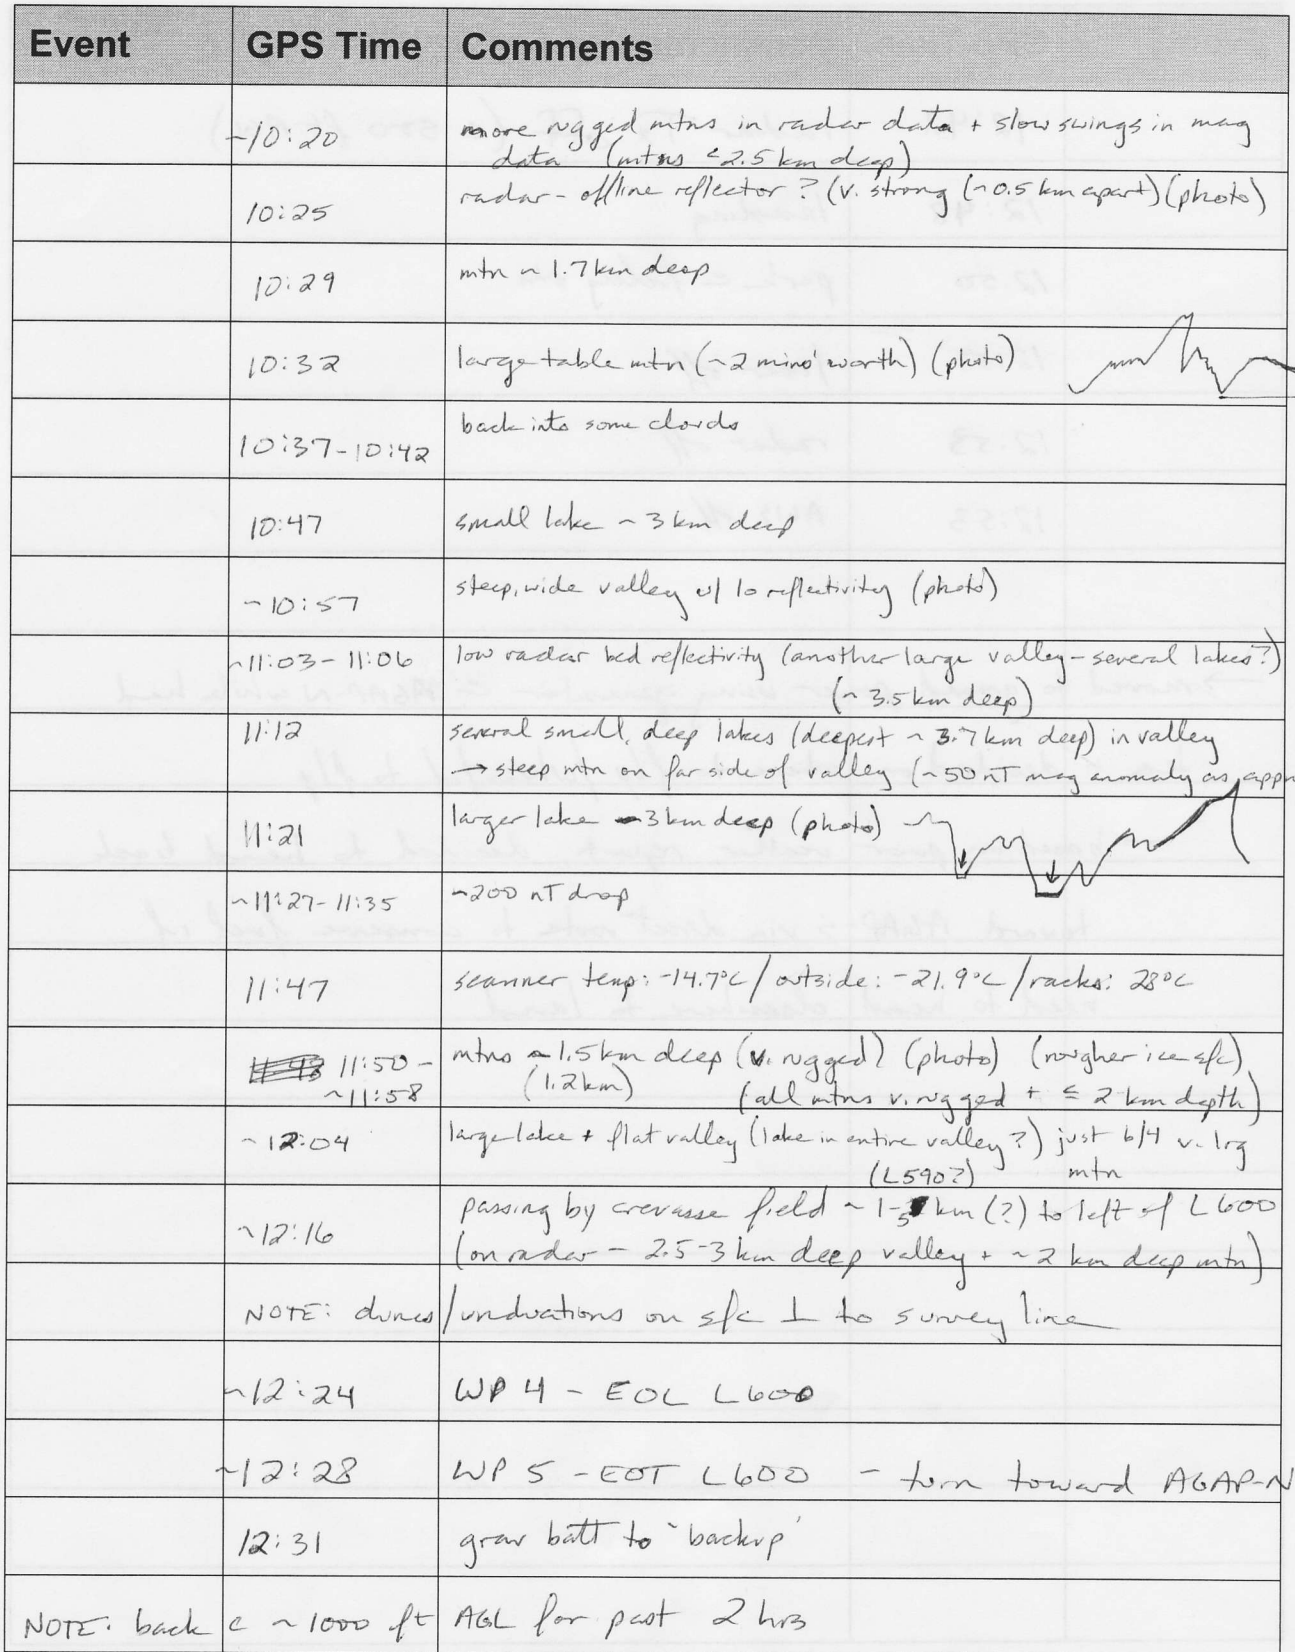 Event GPS Time Comments
~10:20 more rugged mtns in radar data + slow swings in mag
data (mtns <2.5 km deep)
10:25 radar - offline reflector? (v. strong (~0.5 km apart) (photo)
10:29 mtn ~ 1.7 km deep
10:32 large table mtn (~2 mins' worth) (photo)
10:37-10:42 back into some clouds
10:47 small lake ~ 3 km deep
~10:57 steep, wide valley w/ lo reflectivity (photo)
~11:03 - 11:06 low radar bed reflectivity (another large valley - several lakes?)
(~ 3.5 km deep)
11:12 several small, deep lakes (deepest ~ 3.7 km deep) in valley
→ steep mtn on far side of valley (~50 nT mag anomaly as appr
11:21 larger lake ~3 km deep (photo)
~11:27-11:35 ~200 nT drop
11:47 scanner temp: -14.7°C / outside: -21.9°C / racks: 28°C
11:50 - mtns ~ 1.5 km deep (v. rugged) (photo) (rougher ice sfc)
~11:58 (1.2 km) (all mtns v. rugged + ≤ 2 km depth)
~12:04 large lake + flat valley (lake in entire valley?) just b/4 v. lrg
(L590?) mtn
~12:16 passing by crevasse field ~ 1-5 km (?) to left of L600
(on radar - 2.5-3 km deep valley + ~2 km deep mtn)
NOTE: dunes/undulations on sfc ⊥ to survey line
~12:24 WP 4 - EOL L600
~12:28 WP 5 - EOT L600 - turn toward AGAP-N
12:31 grav batt to 'backup'
NOTE: back @ ~1000 ft AGL for past 2 hrs